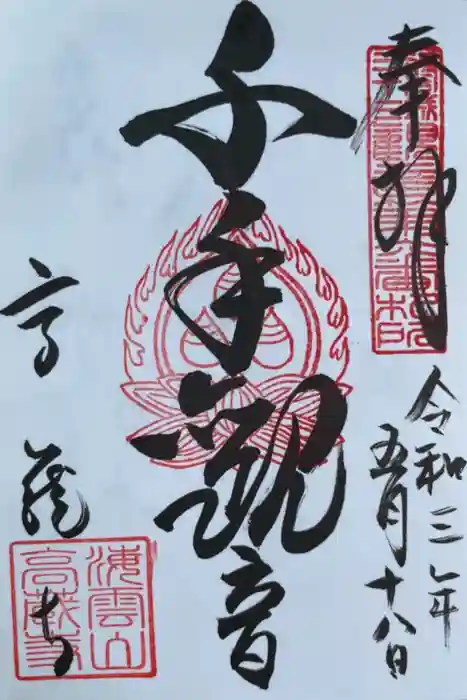 奉拝
令和三年
五月十八日
千手觀音
高蔵寺
海雲山
高蔵寺